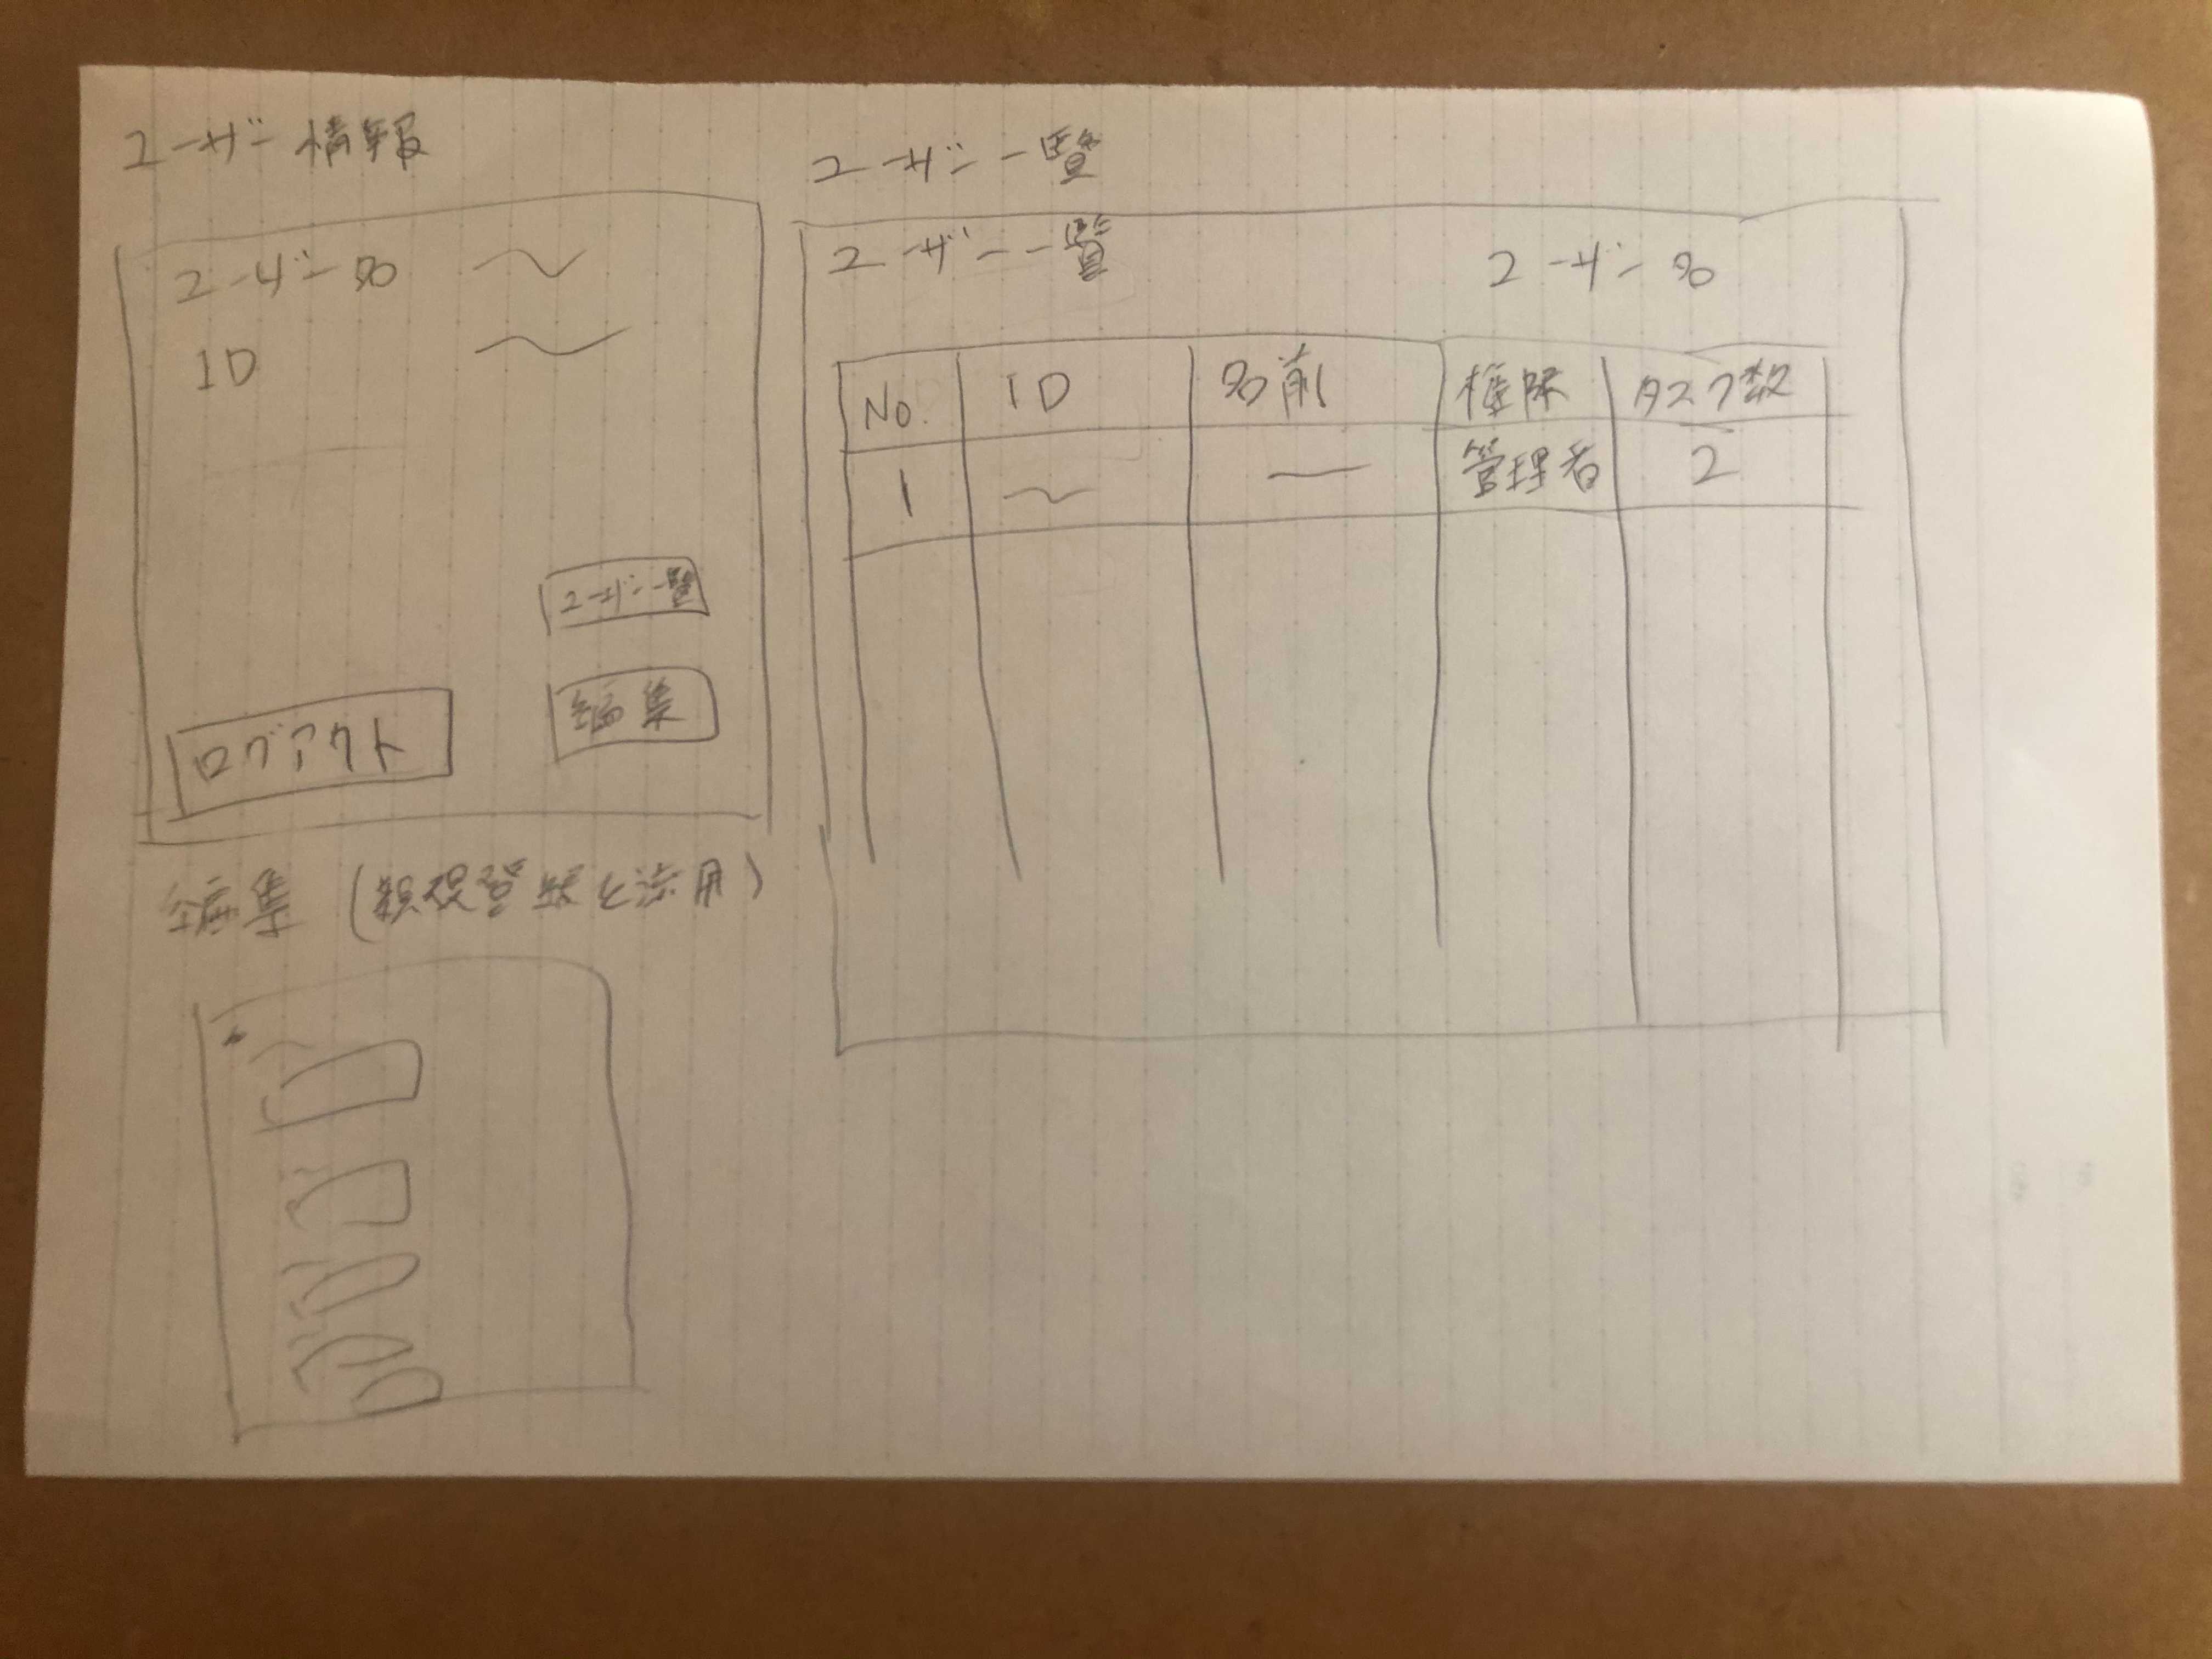 ユーザー情報
ユーザー名
ID
ユーザー一覧
編集
ログアウト
編集 (新規登録を流用)
ユーザー一覧
ユーザー一覧 ユーザー名
No. ID 名前 権限 タスク数
1 管理者 2